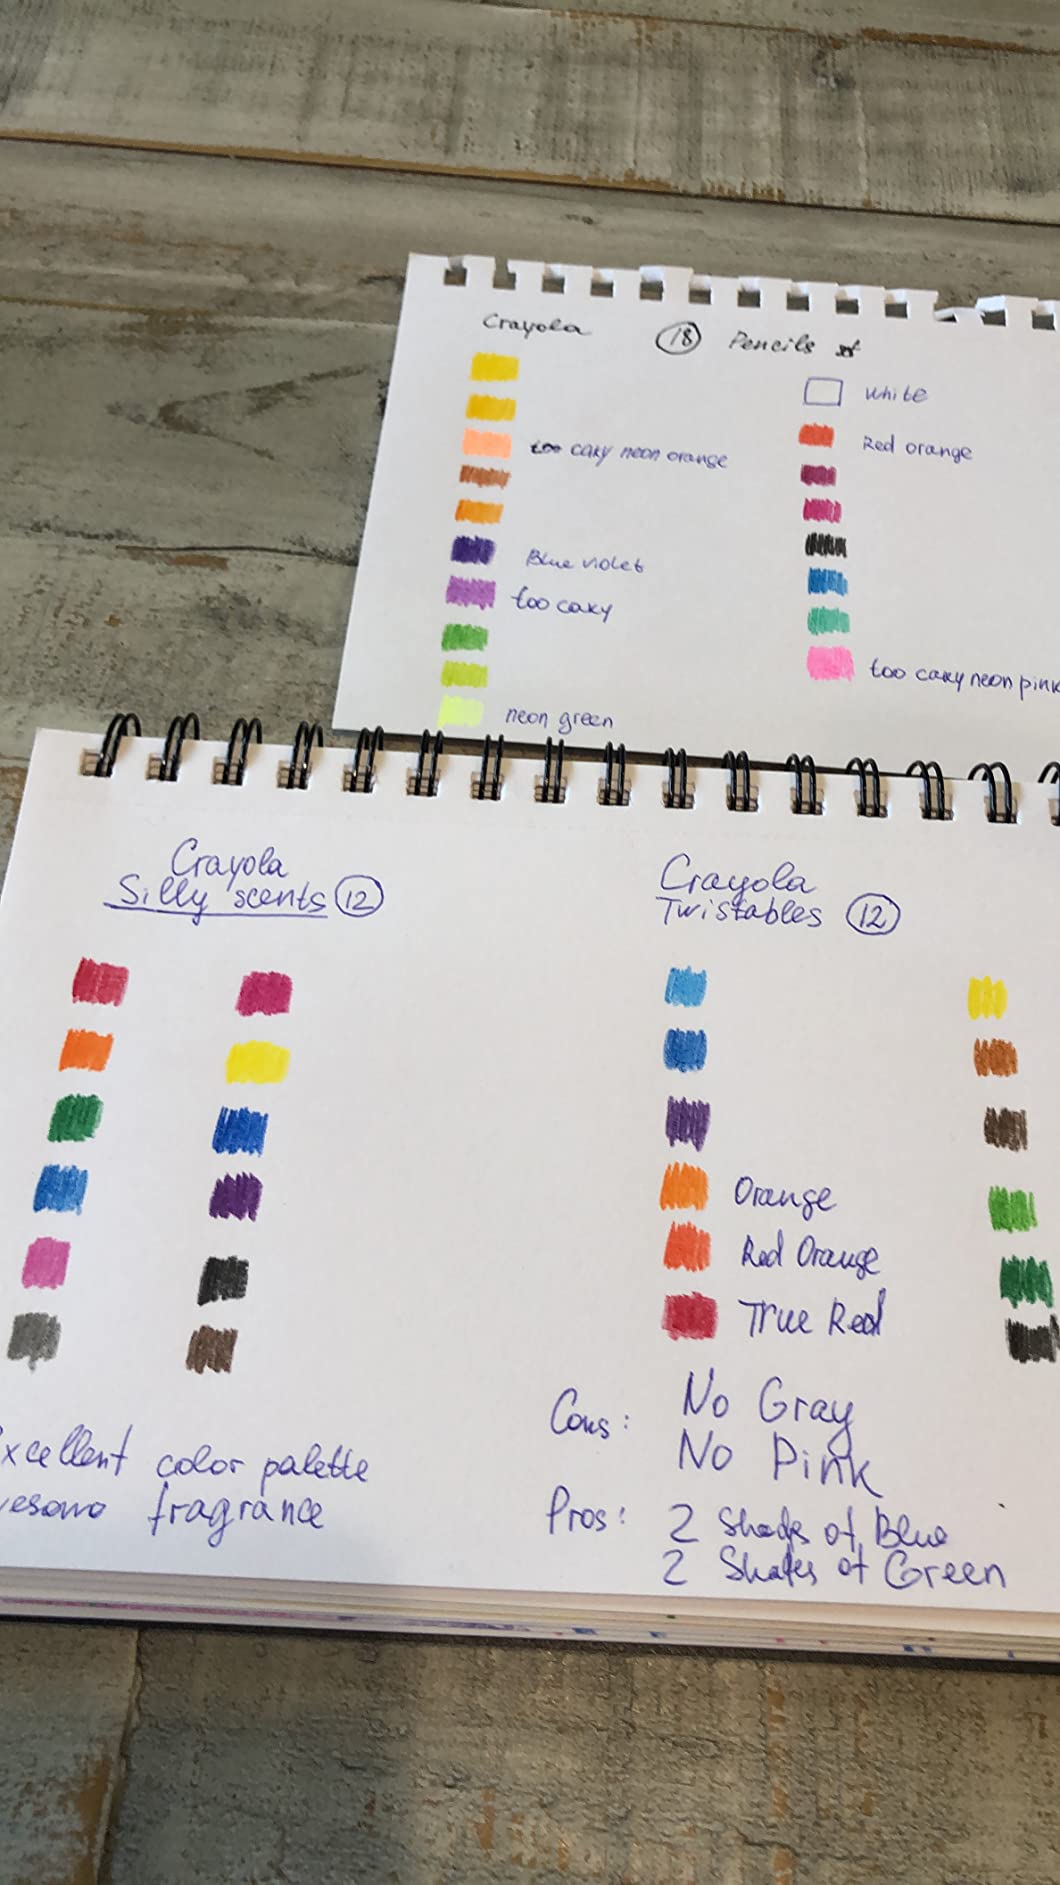 Crayola 18 Pencils
White
Red orange
too caky neon orange
Blue violet
too caky
too caky neon pink
neon green
Crayola
Silly scents 12
Excellent color palette
fragrance
Crayola
Twistables 12
Orange
Red Orange
True Red
Cons: No Gray
No Pink
Pros: 2 Shades of Blue
2 Shades of Green